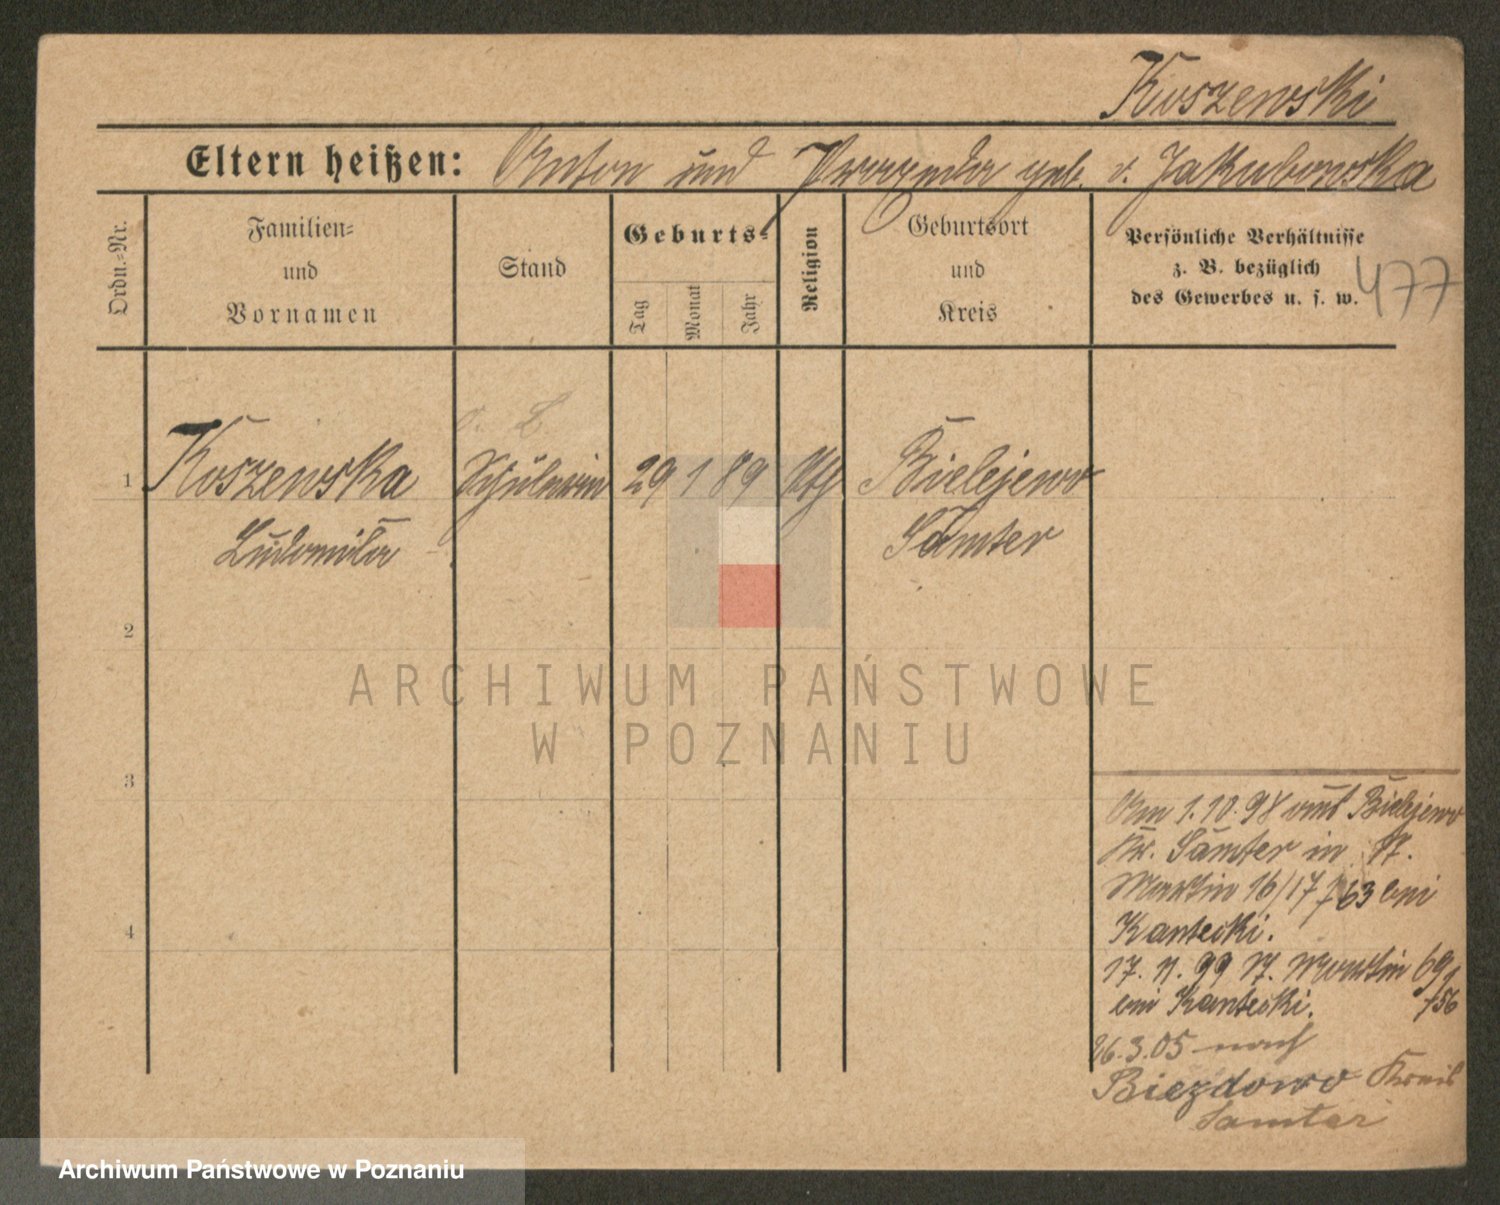 Koszewski
Eltern heißen: Anton und geb. v. Jakubowska
Ordn.-Nr.
Familien-
und
Vornamen
Stand
Geburts-
Tag
Monat
Jahr
Religion
Geburtsort
und
Kreis
Persönliche Verhältnisse
z. B. bezüglich
des Gewerbes u. s. w.
477
1 Koszewska Schülerin 29 1 89 Kth Bielejewo
Ludomila Samter
2
3
4
Am 1.10.98 aus Bielejewo
Kr. Samter in St.
Martin 16/17 763 bei
Kantecki.
17. 11. 99 St. Martin 69
bei Kantecki. 756
26.3.05 nach
Biezdowo Kreis
Samter
ARCHIWUM PAŃSTWOWE
W POZNANIU
Archiwum Państwowe w Poznaniu